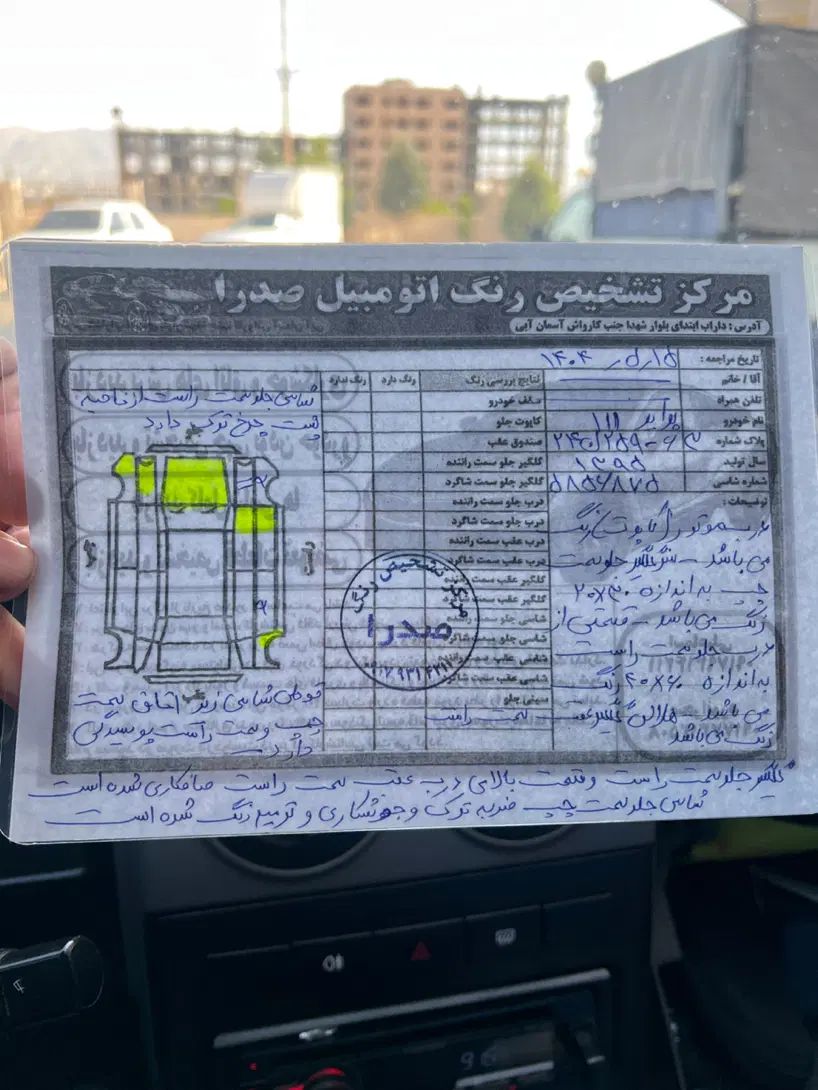 مرکز تشخیص رنگ اتومبیل صدرا
آدرس : داراب ابتدای بلوار شهدا جنب کارواش آسمان آبی
تاریخ مراجعه : ۱۴۰۴٫۵٫۱۵
آقا / خانم
تلفن همراه
نام خودرو پراید ۱۱۱
پلاک شماره
سال تولید ۱۳۹۵
شماره شاسی ۵۸۵۶۸۷۵
توضیحات :
درب موتور (کاپوت) رنگ
می باشد - گلگیر جلو سمت
چپ به اندازه ۳۰×۲۰
رنگ می باشد - قسمتی از
درب جلو سمت راست
به اندازه ۶۰×۴۰ رنگ
می باشد - هلالی گلگیر عقب سمت راست
رنگ می باشد
نتایج بررسی رنگ رنگ دارد رنگ ندارد
سقف خودرو
کاپوت جلو
صندوق عقب
گلگیر جلو سمت راننده
گلگیر جلو سمت شاگرد
درب جلو سمت راننده
درب جلو سمت شاگرد
درب عقب سمت راننده
درب عقب سمت شاگرد
گلگیر عقب سمت راننده
گلگیر عقب سمت شاگرد
شاسی جلو سمت راننده
شاسی جلو سمت شاگرد
شاسی عقب سمت راننده
شاسی عقب سمت شاگرد
سینی جلو
مرکز تشخیص رنگ
صدرا
شاسی جلو سمت راست از ناحیه
پشت چرخ ترک دارد
قوطی شاسی زیر اتاق سمت
چپ و سمت راست پوسیدگی
دارد
گلگیر جلو سمت راست و قسمت بالای درب عقب سمت راست صافکاری شده است
شاسی جلو سمت چپ ضربه ترک و جوشکاری و ترمیم رنگ شده است